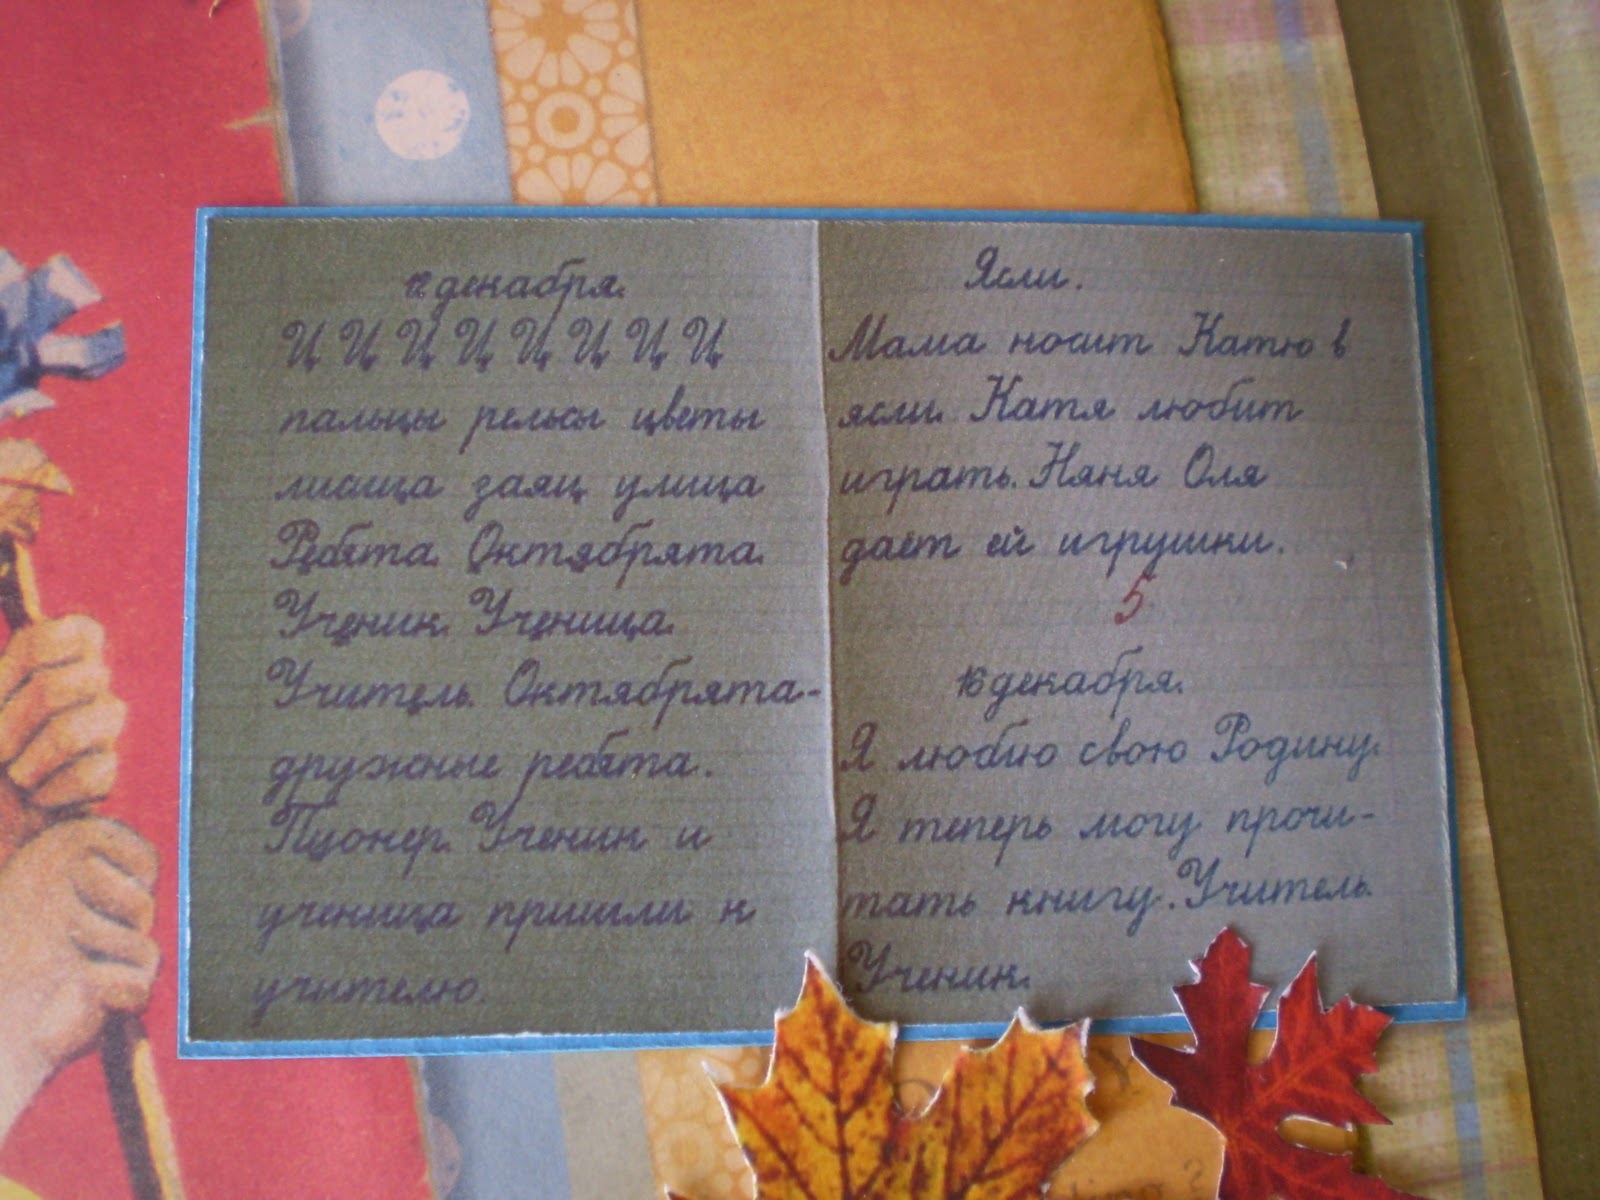 12 декабря.
Ц Ц Ц Ц Ц Ц Ц Ц
пальцы рельсы цветы
лисица заяц улица
Ребята. Октябрята.
Ученик. Ученица.
Учитель. Октябрята-
дружные ребята.
Пионер. Ученик и
ученица пришли к
учителю.
Ясли.
Мама носит Катю в
ясли. Катя любит
играть. Няня Оля
дает ей игрушки.
5
16 декабря.
Я люблю свою Родину.
Я теперь могу прочи-
тать книгу. Учитель.
Ученик.